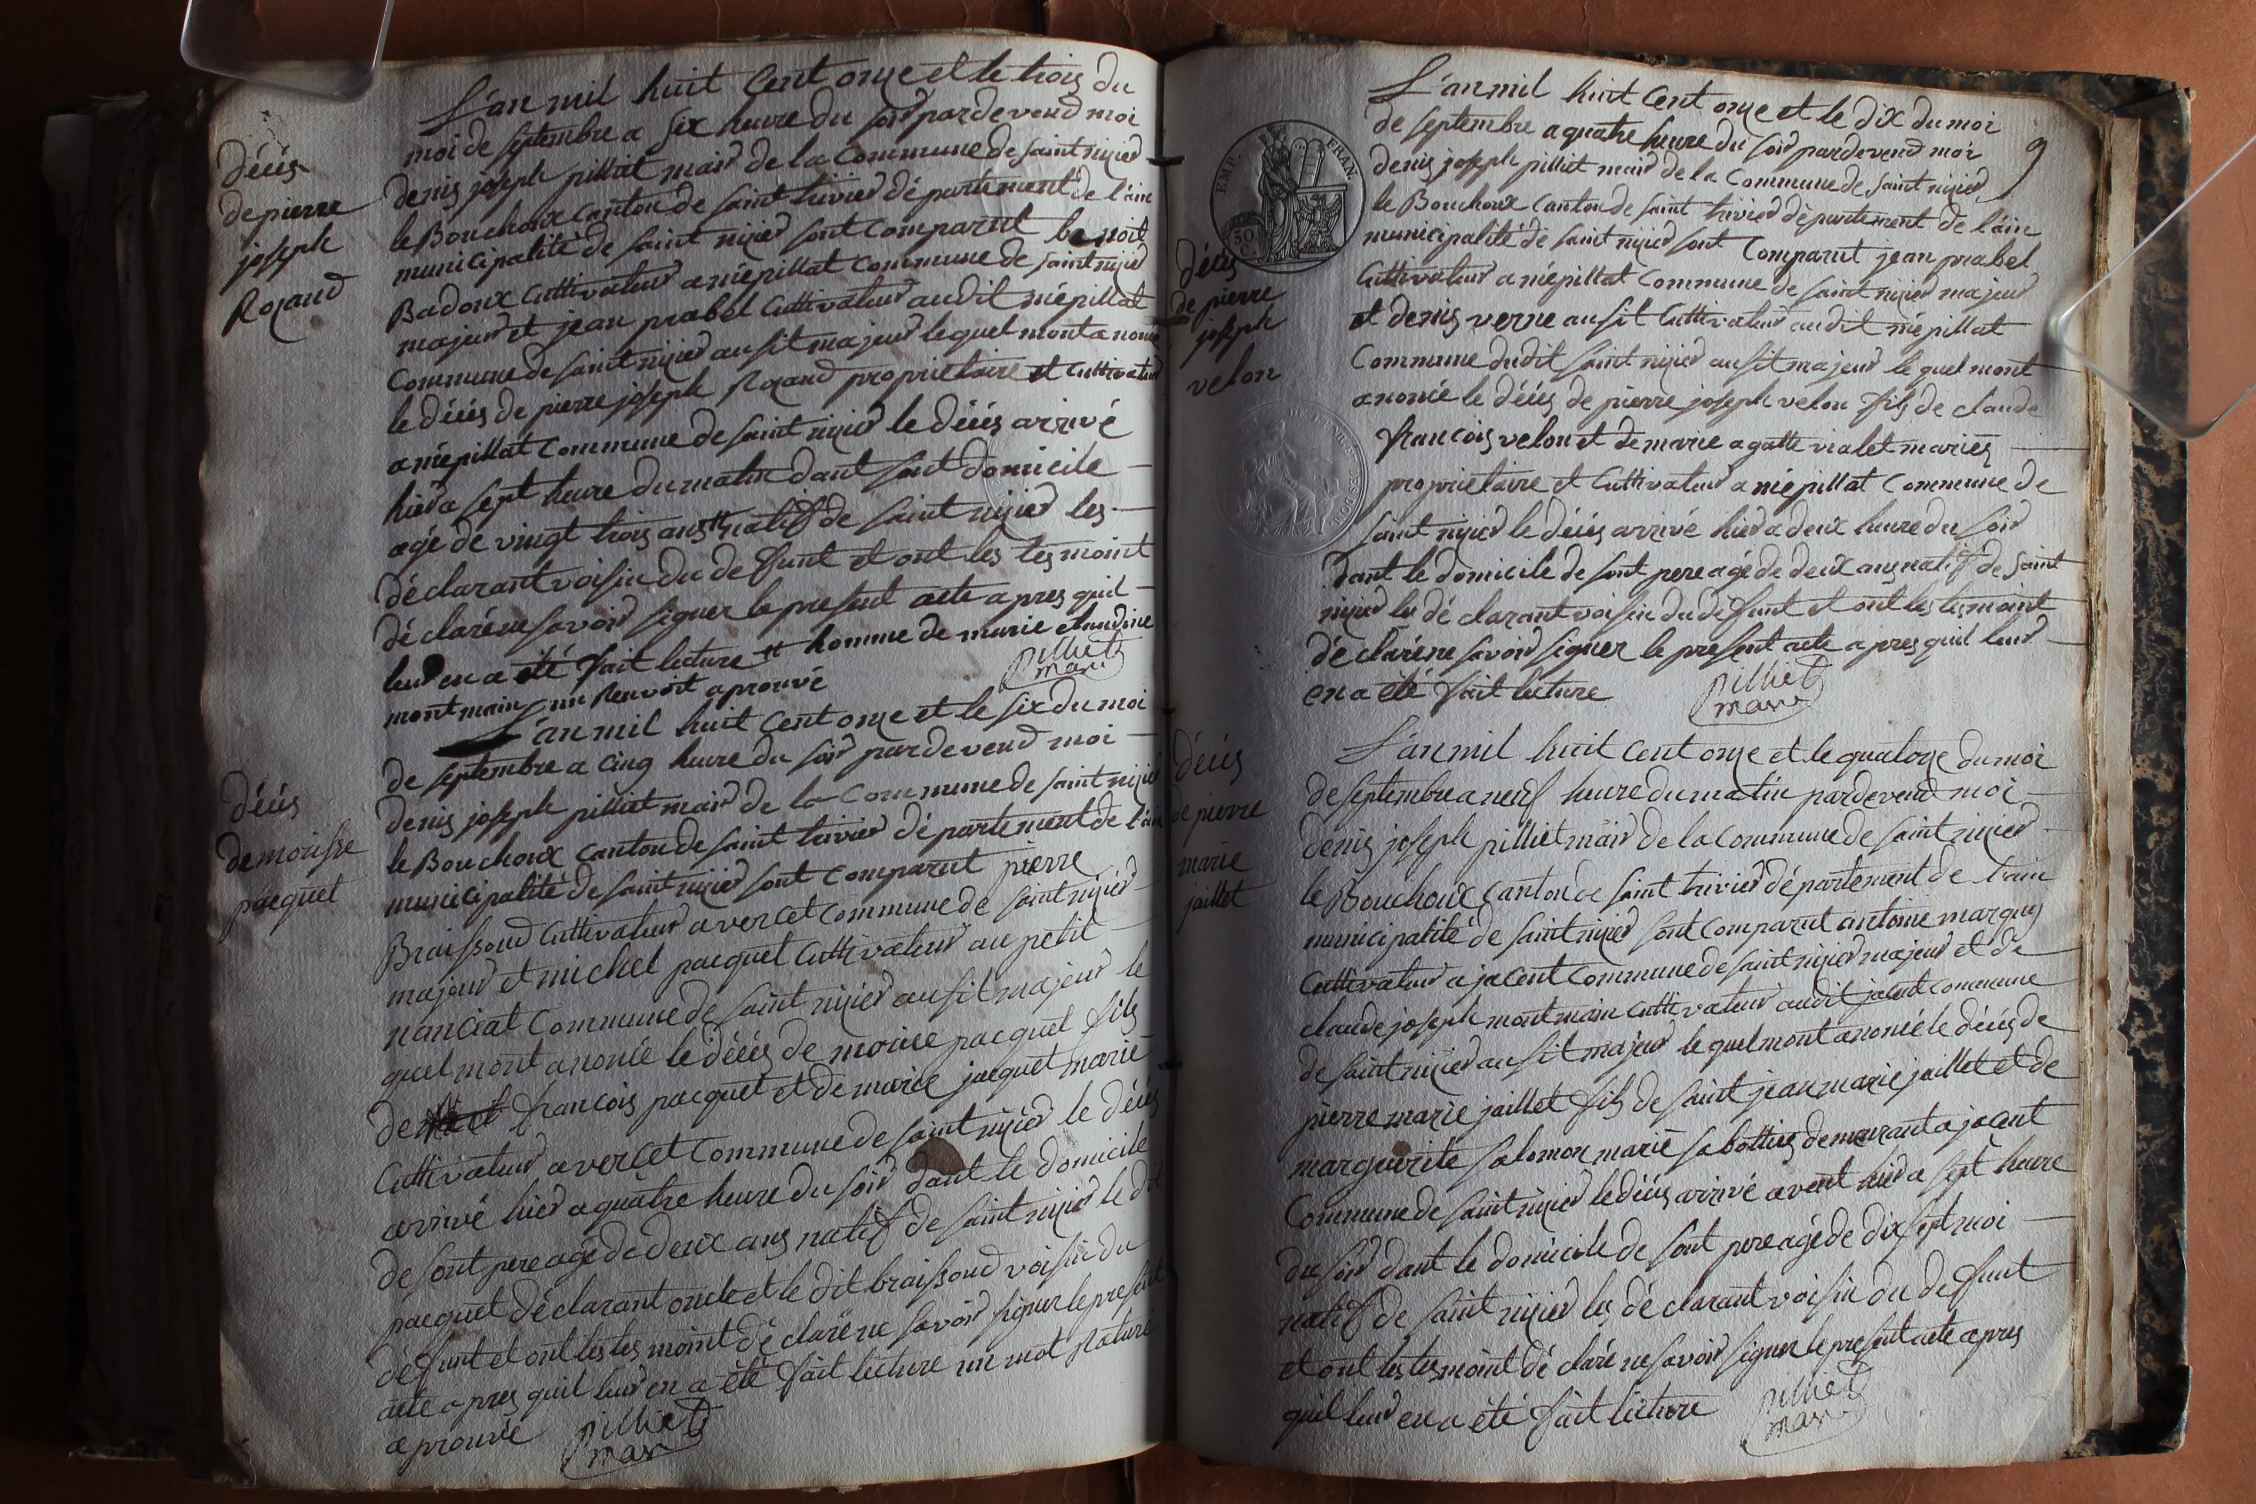 décès
de pierre
joseph
Rozand
L'an mil huit cent onze et le trois du
moi de septembre a six heure du soir pardevend moi
denis joseph pilliat mair de la Commune de saint nizier
le Bouchoux canton de saint trivier département de l'ain
municipalité de saint nizier sont comparut benoit
Badoux cultivateur a niépillat commune de saint nizier
majeur et jean prabel cultivateur audit niépillat
commune de saint nizier ausit majeur lequel mont anoncé
le décès de pierre joseph Rozand propriétaire et cultivateur
a niépillat commune de saint nizier le décès arrivé
hier a sept heure du matin dant sont domicile
agé de vingt trois ans # natif de saint nizier les
déclarant voisin du defunt et ont les tesmoint
déclaré ne savoir signer le present acte apres quil
leur en a été fait lecture # homme de marie claudine
montmain un Renvoit aprouvé
pilliet
mair
décès
de morisse
pacquet
L'an mil huit cent onze et le six du moi
de septembre a cinq heure du soir pardevend moi
denis joseph pilliet mair de la Commune de saint nizier
le Bouchoux canton de saint trivier département de l'ain
municipalité de saint nizier sont comparut pierre
Braissoud cultivateur a vercet commune de saint nizier
majeur et michel pacquet cultivateur au petit
nanciat commune de saint nizier ausit majeur le
quel mont anoncé le décès de morice pacquet fils
de françois pacquet et de marie jacquet marié
cultivateur a vercet commune de saint nizier le décès
arrivé hier a quatre heure du soir dant le domicile
de sont pere agé de deux ans natif de saint nizier le dit
pacquet déclarant oncle et le dit braissoud voisin du
défunt et ont les tesmoint déclaré ne savoir signer le present
acte apres quil leur en a été fait lecture un mot Raturé
aprouvé
pilliet
mair
9
EMP. FRAN.
décès
de pierre
joseph
velon
L'an mil huit cent onze et le dix du moi
de septembre a quatre heure du soir pardevend moi
denis joseph pilliet mair de la Commune de saint nizier
le Bouchoux canton de saint trivier département de l'ain
municipalité de saint nizier sont comparut jean prabel
cultivateur a niépillat commune de saint nizier majeur
et denis verne ausit cultivateur audit niépillat
commune dudit saint nizier ausit majeur le quel mont
anoncé le décès de pierre joseph velon fils de claude
françois velon et de marie agatte vialet mariés
propriétaire et cultivateur a niépillat commune de
saint nizier le décès arrivé hier a deux heure du soir
dant le domicile de sont pere agé de deux ans natif de saint
nizier les déclarant voisin du défunt et ont les tesmoint
déclaré ne savoir signer le present acte apres quil leur
en a été fait lecture
pilliet
mair
décès
de pierre
marie
jaillet
L'an mil huit cent onze et le quatorze du moi
de septembre a neuf heure du matin pardevend moi
denis joseph pilliet mair de la commune de saint nizier
le Bouchoux canton de saint trivier département de l'ain
municipalité de saint nizier sont comparut antoine marquis
cultivateur a jacent commune de saint nizier majeur et de
claude joseph montmain cultivateur audit jacent commune
de saint nizier ausit majeur le quel mont anoncé le décès de
pierre marie jaillet fils de saint jean marie jaillet et de
marguerite salomon marié sabottier demeurant a jacent
commune de saint nizier le décès arrivé avent hier a sept heure
du soir dant le domicile de sont pere agé de dix sept moi
natif de saint nizier les déclarant voisin du defunt
et ont les tesmoint déclaré ne savoir signer le present acte apres
quil leur en a été fait lecture
pilliet
mair